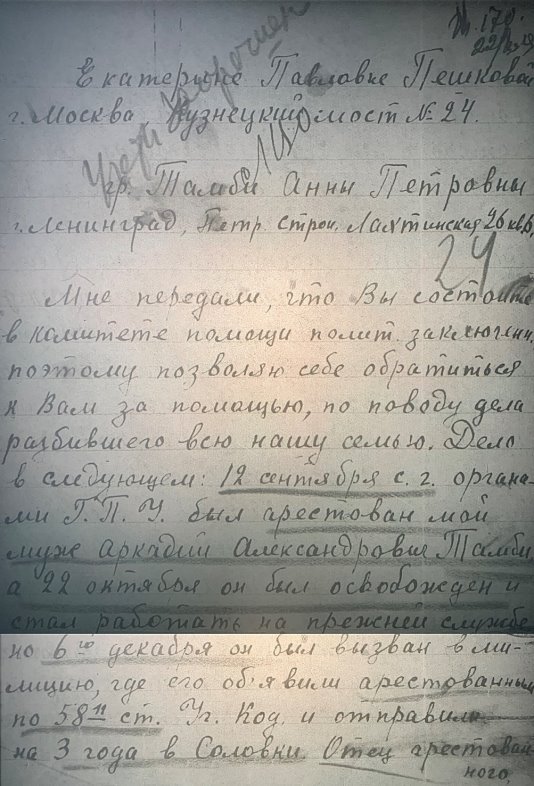 22/XII 29
Екатерине Павловне Пешковой
г. Москва, Кузнецкий мост № 24.
гр. Тамби Анны Петровны
г. Ленинград, Петр. Строн. Лахтинская 26 кв.
24
Мне передали, что Вы состоите
в комитете помощи полит. заключен.
поэтому позволяю себе обратиться
к Вам за помощью, по поводу дела
разбившего всю нашу семью. Дело
в следующем: 12 сентября с. г. органа-
ми Г. П. У. был арестован мой
муж Аркадий Александрович Тамби,
а 22 октября он был освобожден и
стал работать на прежней службе
но 6го декабря он был вызван в ми-
лицию, где его об'явили арестованным
по 58 11 ст. Уг. Код. и отправили
на 3 года в Соловки. Отец арестован-
ного,